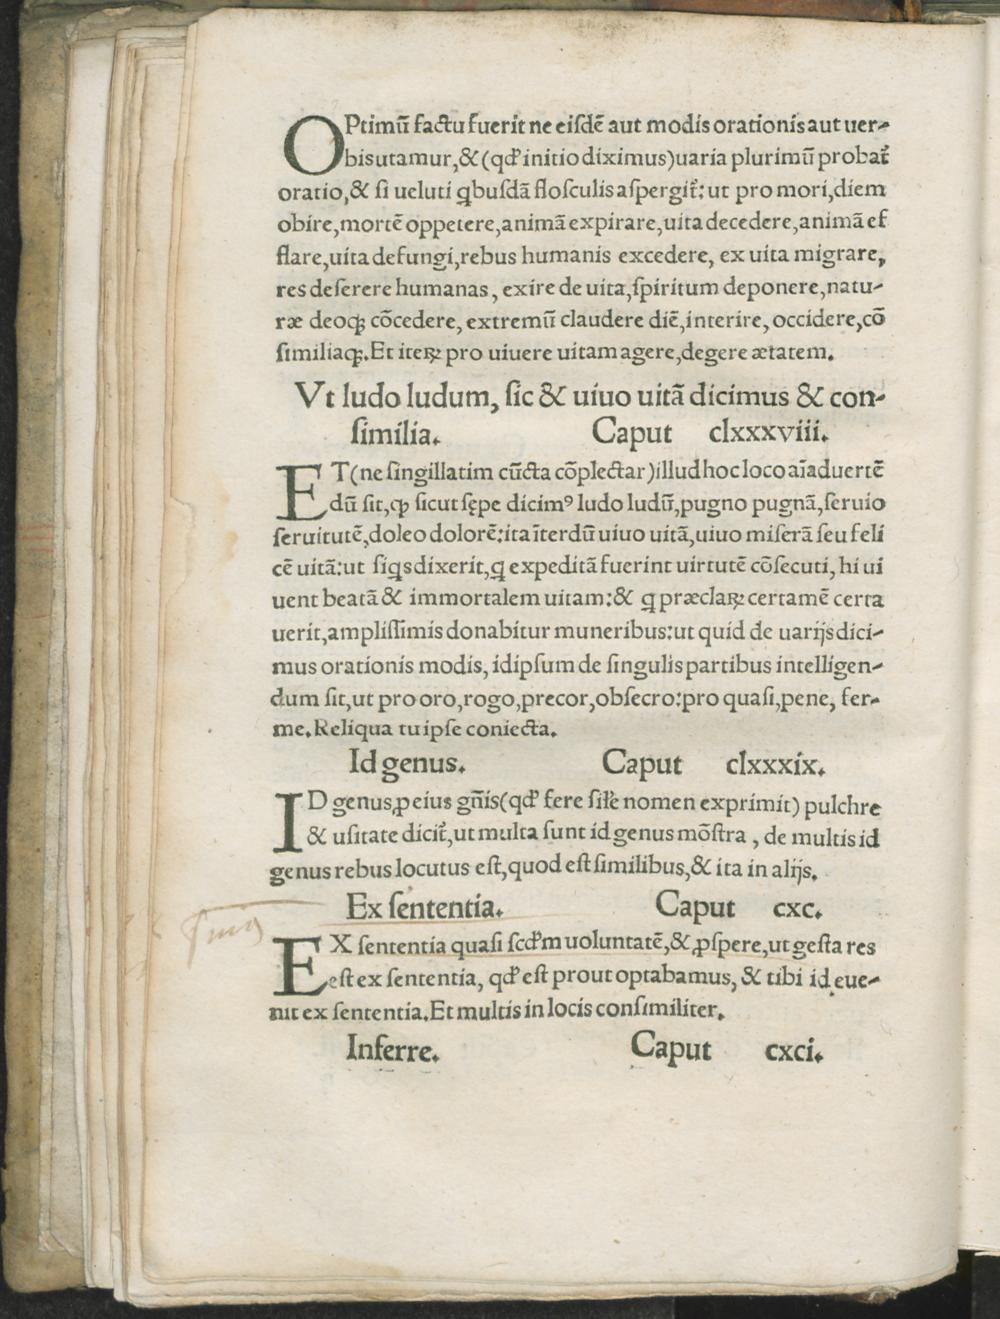 OPtimū factu fuerit ne eiſdē aut modis orationis aut uer-
bis utamur, & (qđ initio diximus) uaria plurimū probat᷒
oratio, & ſi ueluti ꝗbuſdā floſculis aſpergit᷒: ut pro mori, diem
obire, mortē oppetere, animā expirare, uita decedere, animā ef
flare, uita defungi, rebus humanis excedere, ex uita migrare,
res deſerere humanas, exire de uita, ſpiritum deponere, natu-
ræ deoqꝫ cōcedere, extremū claudere diē, interire, occidere, cō
ſimiliaqꝫ. Et iteꝝ pro uiuere uitam agere, degere ætatem.
Vt ludo ludum, ſic & uiuo uitā dicimus & con-
ſimilia. Caput clxxxviii.
ET (ne ſingillatim cūcta cōplectar) illud hoc loco aīaduertē
dū ſit, ꝙ ſicut ſępe dicimꝰ ludo ludū, pugno pugnā, ſeruio
ſeruitutē, doleo dolorē: ita īterdū uiuo uitā, uiuo miſerā ſeu feli
cē uitā: ut ſiꝗs dixerit, ꝗ expeditā fuerint uirtutē cōſecuti, hi ui
uent beatā & immortalem uitam: & ꝗ præclaꝝ certamē certa
uerit, ampliſſimis donabitur muneribus: ut quid de uarijs dici-
mus orationis modis, idipſum de ſingulis partibus intelligen-
dum ſit, ut pro oro, rogo, precor, obſecro: pro quaſi, pene, fer-
me. Reliqua tu ipſe coniecta.
Id genus. Caput clxxxix.
ID genus, ꝓ eius gn̄is (qđ fere ſiłe nomen exprimit) pulchre
& uſitate dicit᷒, ut multa ſunt id genus mōſtra, de multis id
genus rebus locutus eſt, quod eſt ſimilibus, & ita in alijs.
Ex ſententia. Caput cxc.
EX ſententia quaſi ſcđm uoluntatē, & ꝓſpere, ut geſta res
eſt ex ſententia, qđ eſt prout optabamus, & tibi id eue-
nit ex ſententia. Et multis in locis conſimiliter.
Inferre. Caput cxci.